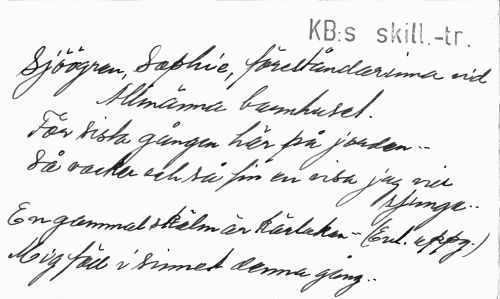 KB:s skill.-tr.
Sjöögren, Sophie, föreståndarinna vid
Allmänna barnhuset.
För sista gången här på jorden..
Så vacker och så fin en visa jag vill
sjunga..
En gammal skälm är kärleken - (Enl. uppg.)
Mig föll i sinnet denna gång..